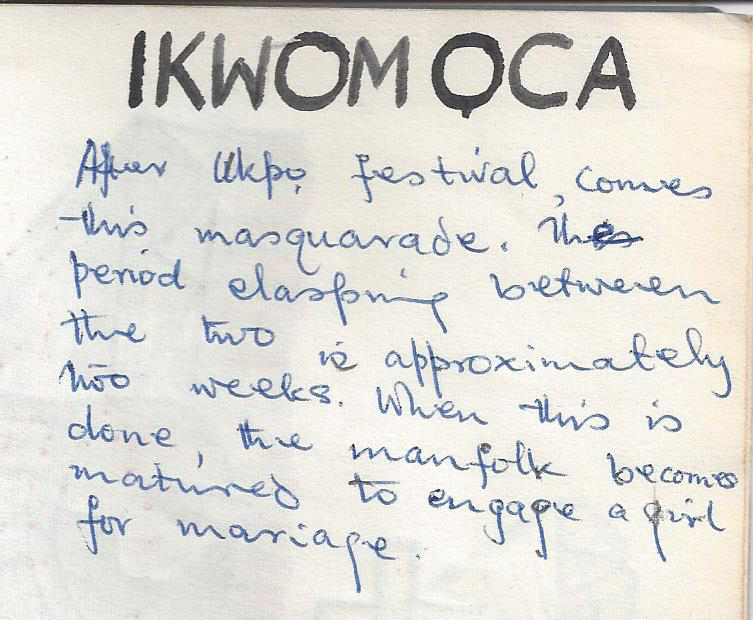 IKWOM OCA
After Ukpọ festival, comes
this masquarade. The
period elasping between
the two is approximately
two weeks. When this is
done, the manfolk becomes
matured to engage a girl
for mariage.